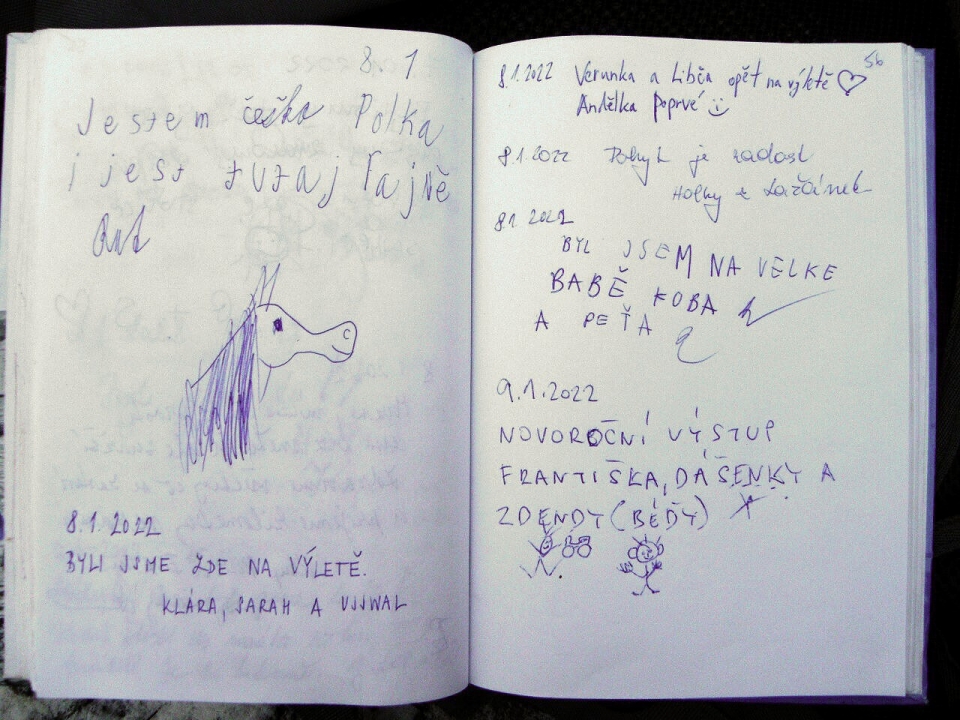 8 1
Jestem češka Polka
i jest tutaj fajně
8.1.2022
BYLI JSME ZDE NA VÝLETĚ.
KLÁRA, SARAH A UJJWAL
56
8.1.2022 Verunka a Libča opět na výletě ♡
Andělka poprvé ☺
8.1.2022 Pohyb je radost
Holky z Lažánek
8.1 2022
BYL JSEM NA VELKE
BABĚ KOBA
A PEŤA
9.1.2022
NOVOROČNÍ VÝSTUP
FRANTIŠKA, DÁŠENKY A
ZDENDY (BÉDY)